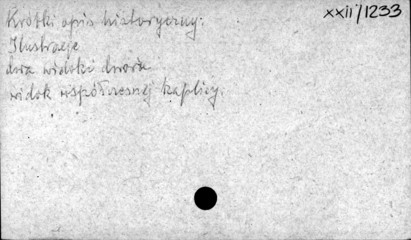 xxii/1233
Krótki opis historyczny.
Ilustracje
dwa widoki dworu
widok współczesnej kaplicy.